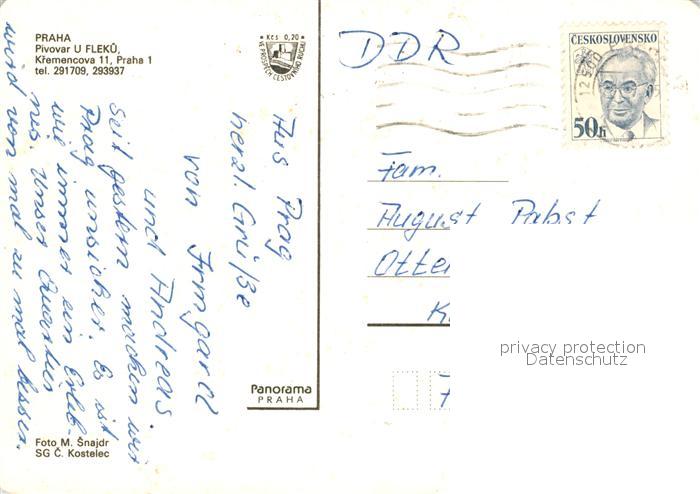 PRAHA
Pivovar U FLEKŮ,
Křemencova 11, Praha 1
tel. 291709, 293937
Kčs 0,20
VE PROSPĚCH CESTOVNÍHO RUCHU
DDR
ČESKOSLOVENSKO
50h
Aus Prag
herzl. Grüße
von Irmgard
und Andreas.
Seit gestern machen wir
Prag unsicher. Es ist
wie immer ein Erleb-
nis. Unser Quartier
wird von mal zu mal besser.
Fam.
August Pabst
Otte
K
7
privacy protection
Datenschutz
Panorama
PRAHA
Foto M. Šnajdr
SG Č. Kostelec